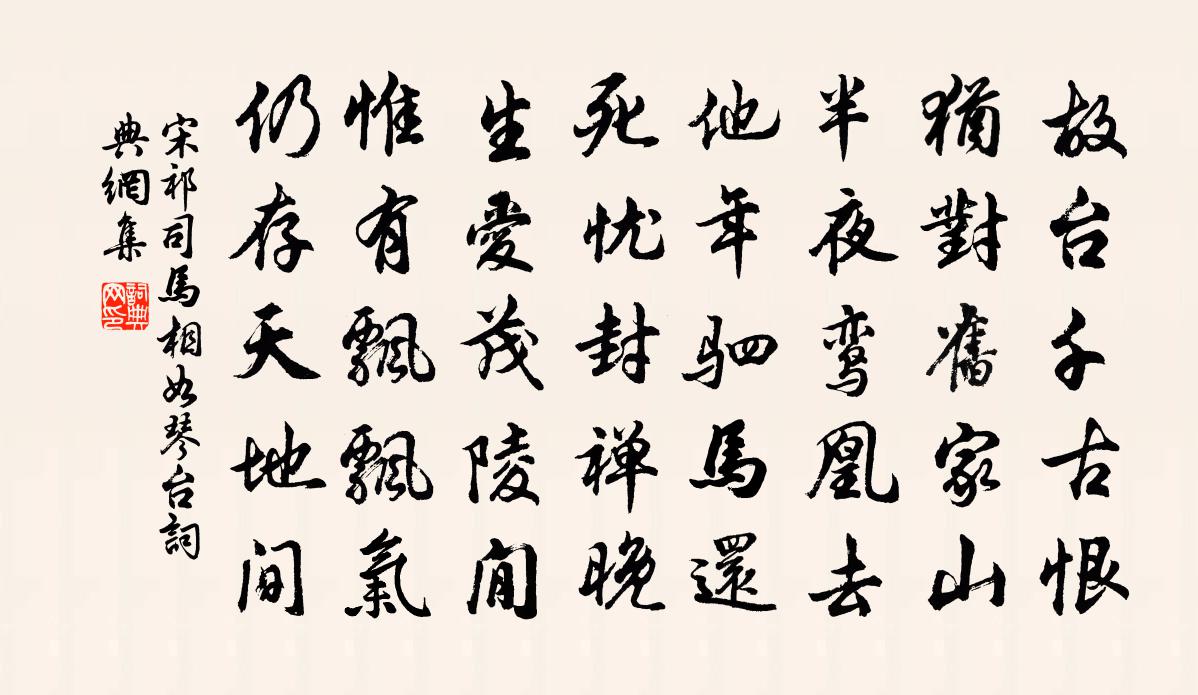 故台千古恨
猶對舊家山
半夜鸾凰去
他年驷馬還
死忧封禅晚
生愛茂陵閒
惟有飄飄氣
仍存天地間
宋祁司馬相如琴台詞
典網集
詞典
网印